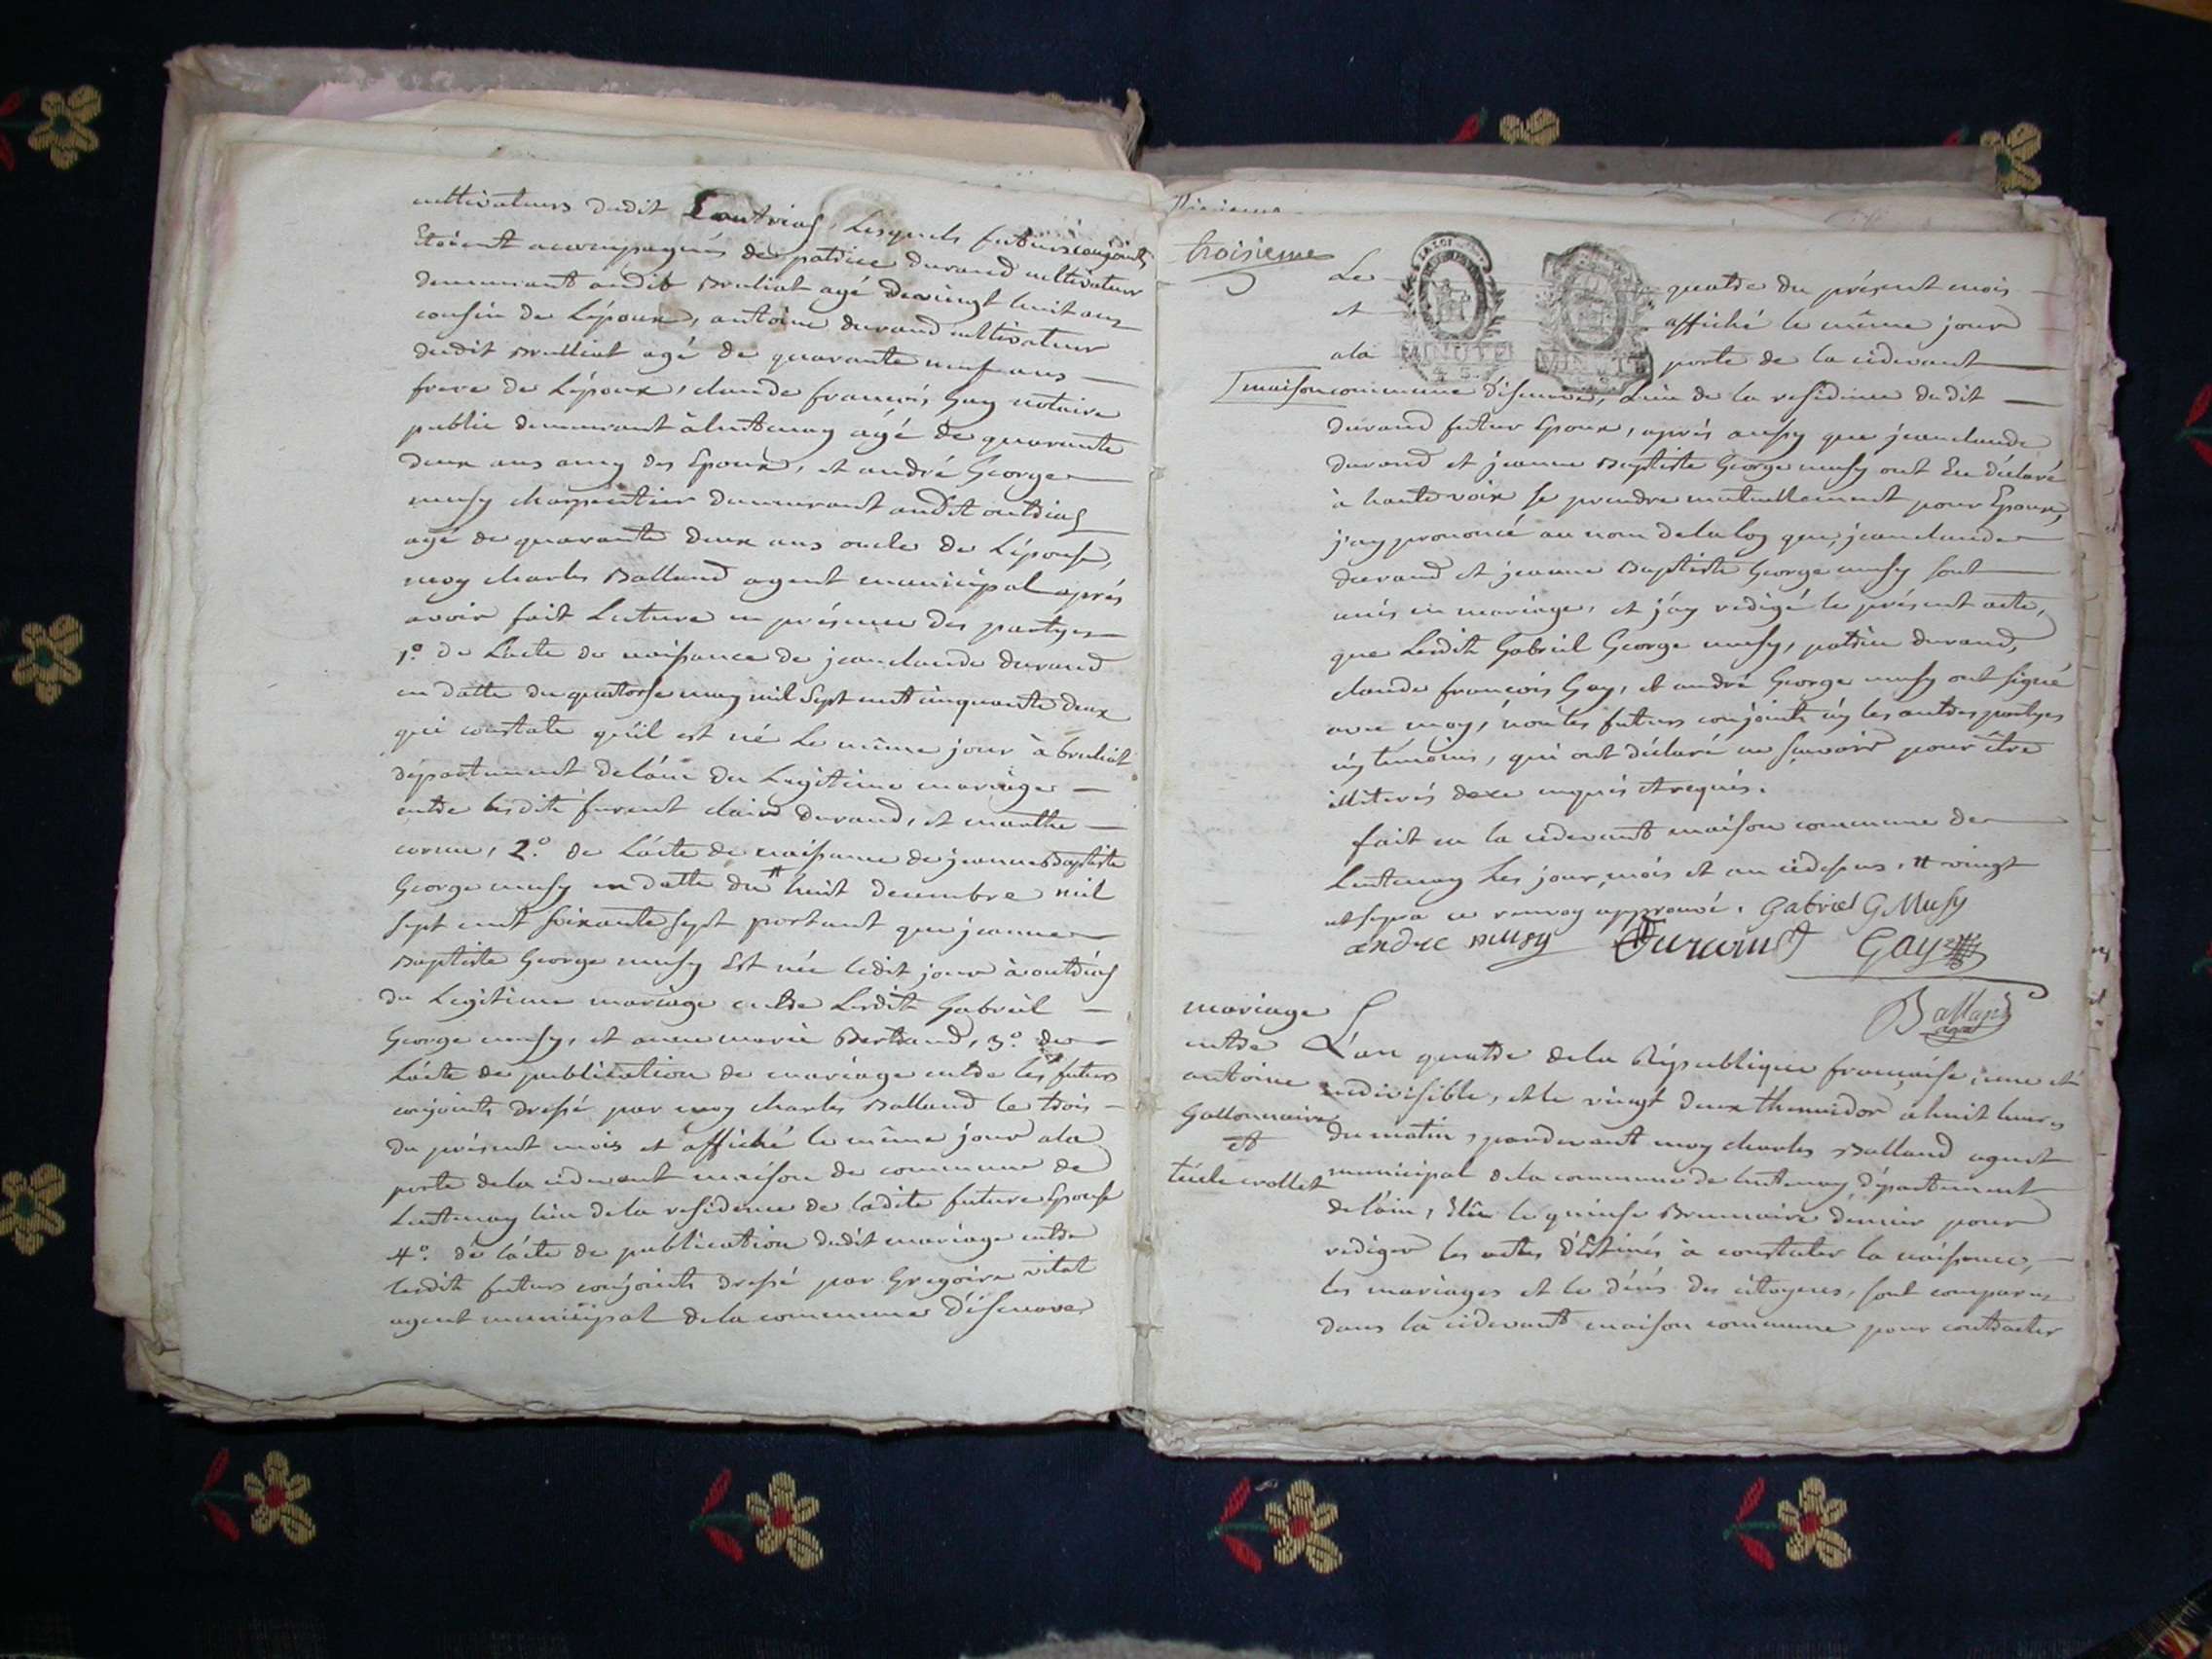 cultivateurs dudit Loutrias, Lesquels futurs conjoints
Etoient accompagnés de patrice durand cultivateur
demeurant audit Bruliat agé de vingt huit ans
cousin de L'époux, antoine durand cultivateur
dudit Brulliat agé de quarante neuf ans
frere de L'époux, claude françois Gay notaire
public demeurant à Lentenay agé de quarante
deux ans amy des Epoux, et andré George
musy charpentier demeurant audit outrias
agé de quarante deux ans oncle de L'épouse,
moy charles Balland agent municipal après
avoir fait Lecture en présence des partyes
1.° de L'acte de naissance de jean claude durand
en datte du quatorse may mil sept cent cinquante deux
qui constate qu'il est né Le même jour à bruliat
département de l'ain du Legitime mariage
entre lesdits furent claude durand, et marthe
cornu, 2.° de L'acte de naissance de jeanne Baptiste
George musy en datte du # huit decembre mil
sept cent soixante sept portant que jeanne
Baptiste George musy est née ledit jour à outrias
du Legitime mariage entre Ledit Gabriel
George musy, et anne marie Bertrand, 3.° de
L'acte de publication de mariage entre les futurs
conjoints dressé par moy charles Balland le trois
du présent mois et affiché le même jour a la
porte de la cidevant maison de commune de
Lentenay lieu de la residence de ladite future Epouse
4.° de l'acte de publication dudit mariage entre
lesdits futurs conjoints dressé par Gregoire vitat
agent municipal de la commune d'Isenave
troisieme
Le quatre du présent mois
et affiché le même jour
a la porte de la cidevant
LA LOI
MINUTE
MINUTE
maison commune d'Isenave, Lieu de la residence dudit
durand futur Epoux, après aussy que jean claude
durand et jeanne Baptiste George musy ont Eu déclaré
à haute voix se prendre mutuellement pour Epoux,
j'ay prononcé au nom de la loy que, jean claude
durand et jeanne Baptiste George musy sont
unis en mariage, et j'ay redigé le présent acte,
que Lesdits Gabriel George musy, patrice durand,
claude françois Gay, et andré George musy ont signé
avec moy, non les futurs conjoints ny les autres partyes
ny temoins, qui ont déclaré ne sçavoir pour être
illiterés de ce enquis et requis.
fait en la cidevant maison commune de
Lentenay Les jour, mois et an cidessus, # vingt
ce renvoy approuvé. Gabriel G Musy
andre musy Durand Gay
Balland
agent
mariage
entre
antoine
Gallonnaire
et
crollet
L'an quatre de la République française une et
indivisible, et le vingt deux thermidor a huit heures
du matin, pardevant moy charles Balland agent
municipal de la commune de Lentenay département
de l'ain, Elû le quinse Brumaire dernier pour
rediger les actes d'Estinés à constater la naissance,
les mariages et le décès des citoyens, sont comparus
dans la cidevant maison commune pour contracter